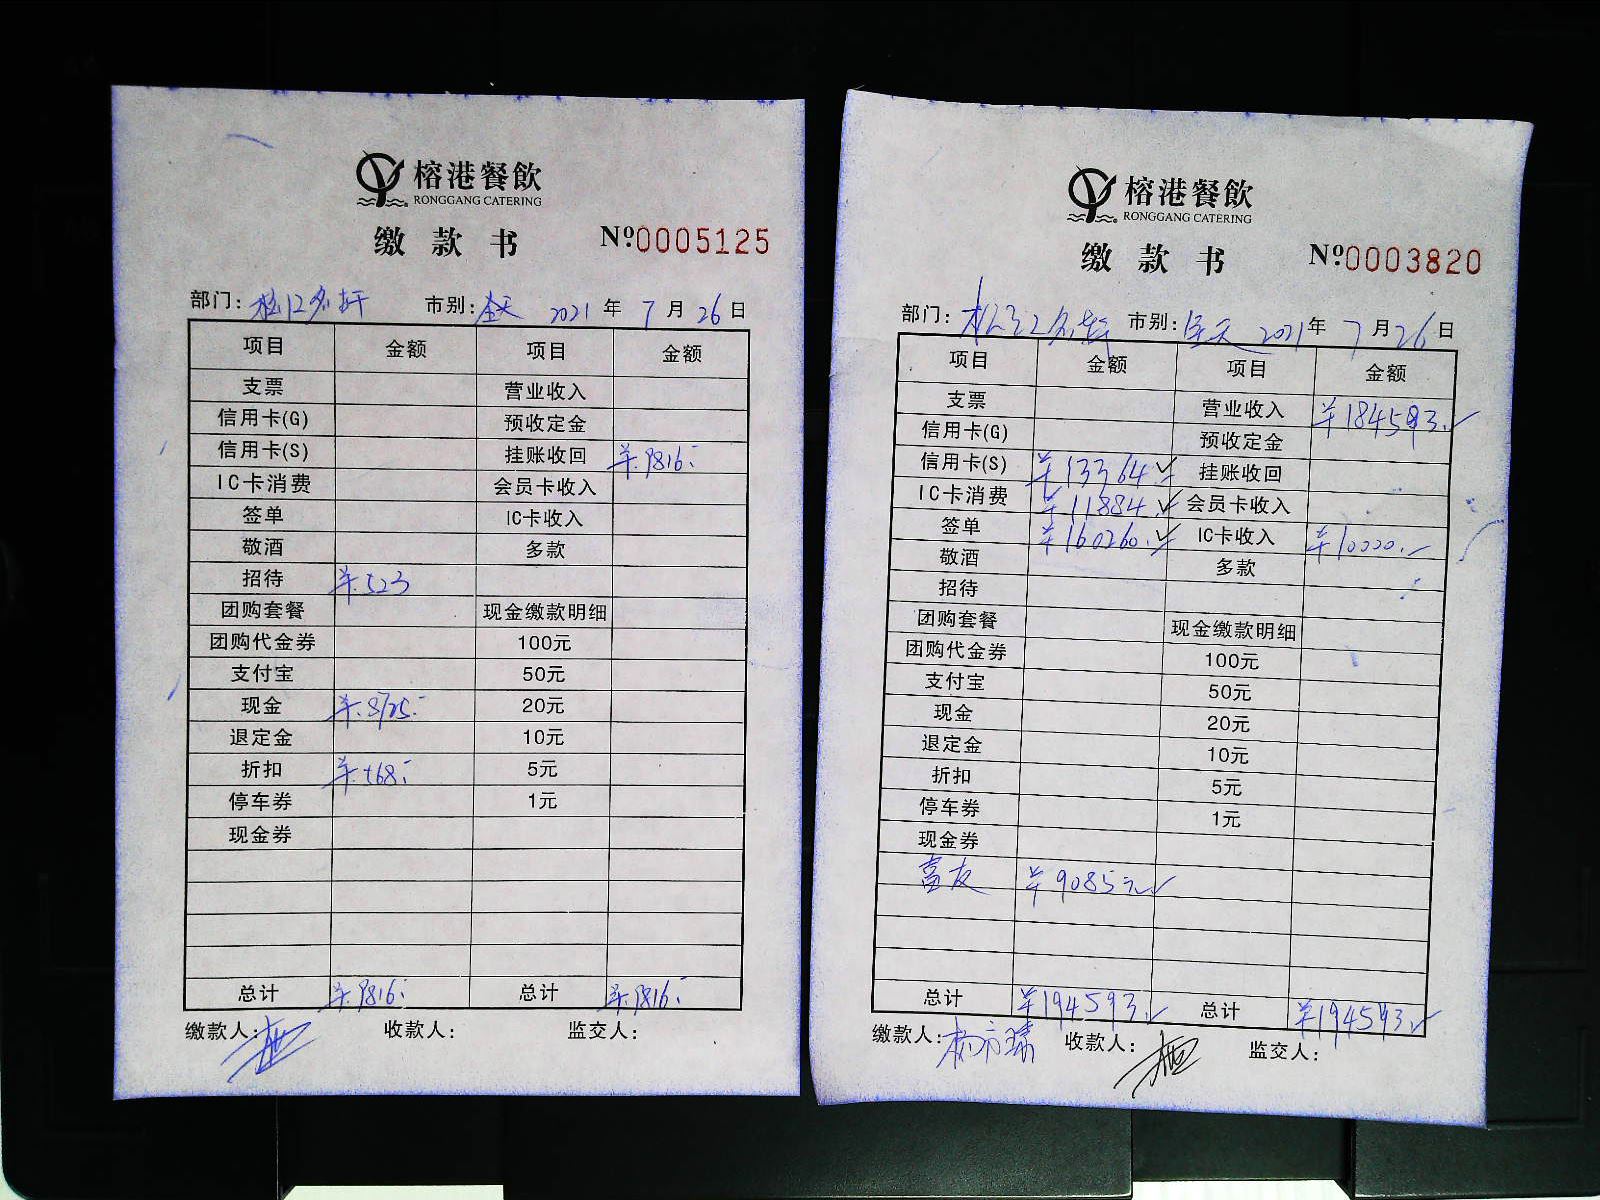 榕港餐飲
RONGGANG CATERING
缴款书 Nº0005125
部门: 市别: 全天 2021年7月26日
项目 金额 项目 金额
支票 营业收入
信用卡(G) 预收定金
信用卡(S) 挂账收回 ¥9816
IC卡消费 会员卡收入
签单 IC卡收入
敬酒 多款
招待 ¥523
团购套餐 现金缴款明细
团购代金券 100元
支付宝 50元
现金 ¥8725 20元
退定金 10元
折扣 ¥568 5元
停车券 1元
现金券
总计 ¥9816 总计 ¥9816
缴款人: 收款人: 监交人:
榕港餐飲
RONGGANG CATERING
缴款书 Nº0003820
部门: 市别: 全天 2021年7月26日
项目 金额 项目 金额
支票 营业收入 ¥184593.
信用卡(G) 预收定金
信用卡(S) ¥13364 挂账收回
IC卡消费 ¥11884 会员卡收入
签单 ¥160260. IC卡收入 ¥10000.
敬酒 多款
招待
团购套餐 现金缴款明细
团购代金券 100元
支付宝 50元
现金 20元
退定金 10元
折扣 5元
停车券 1元
现金券
富友 ¥9085元
总计 ¥194593. 总计 ¥194593.
缴款人: 收款人: 监交人: